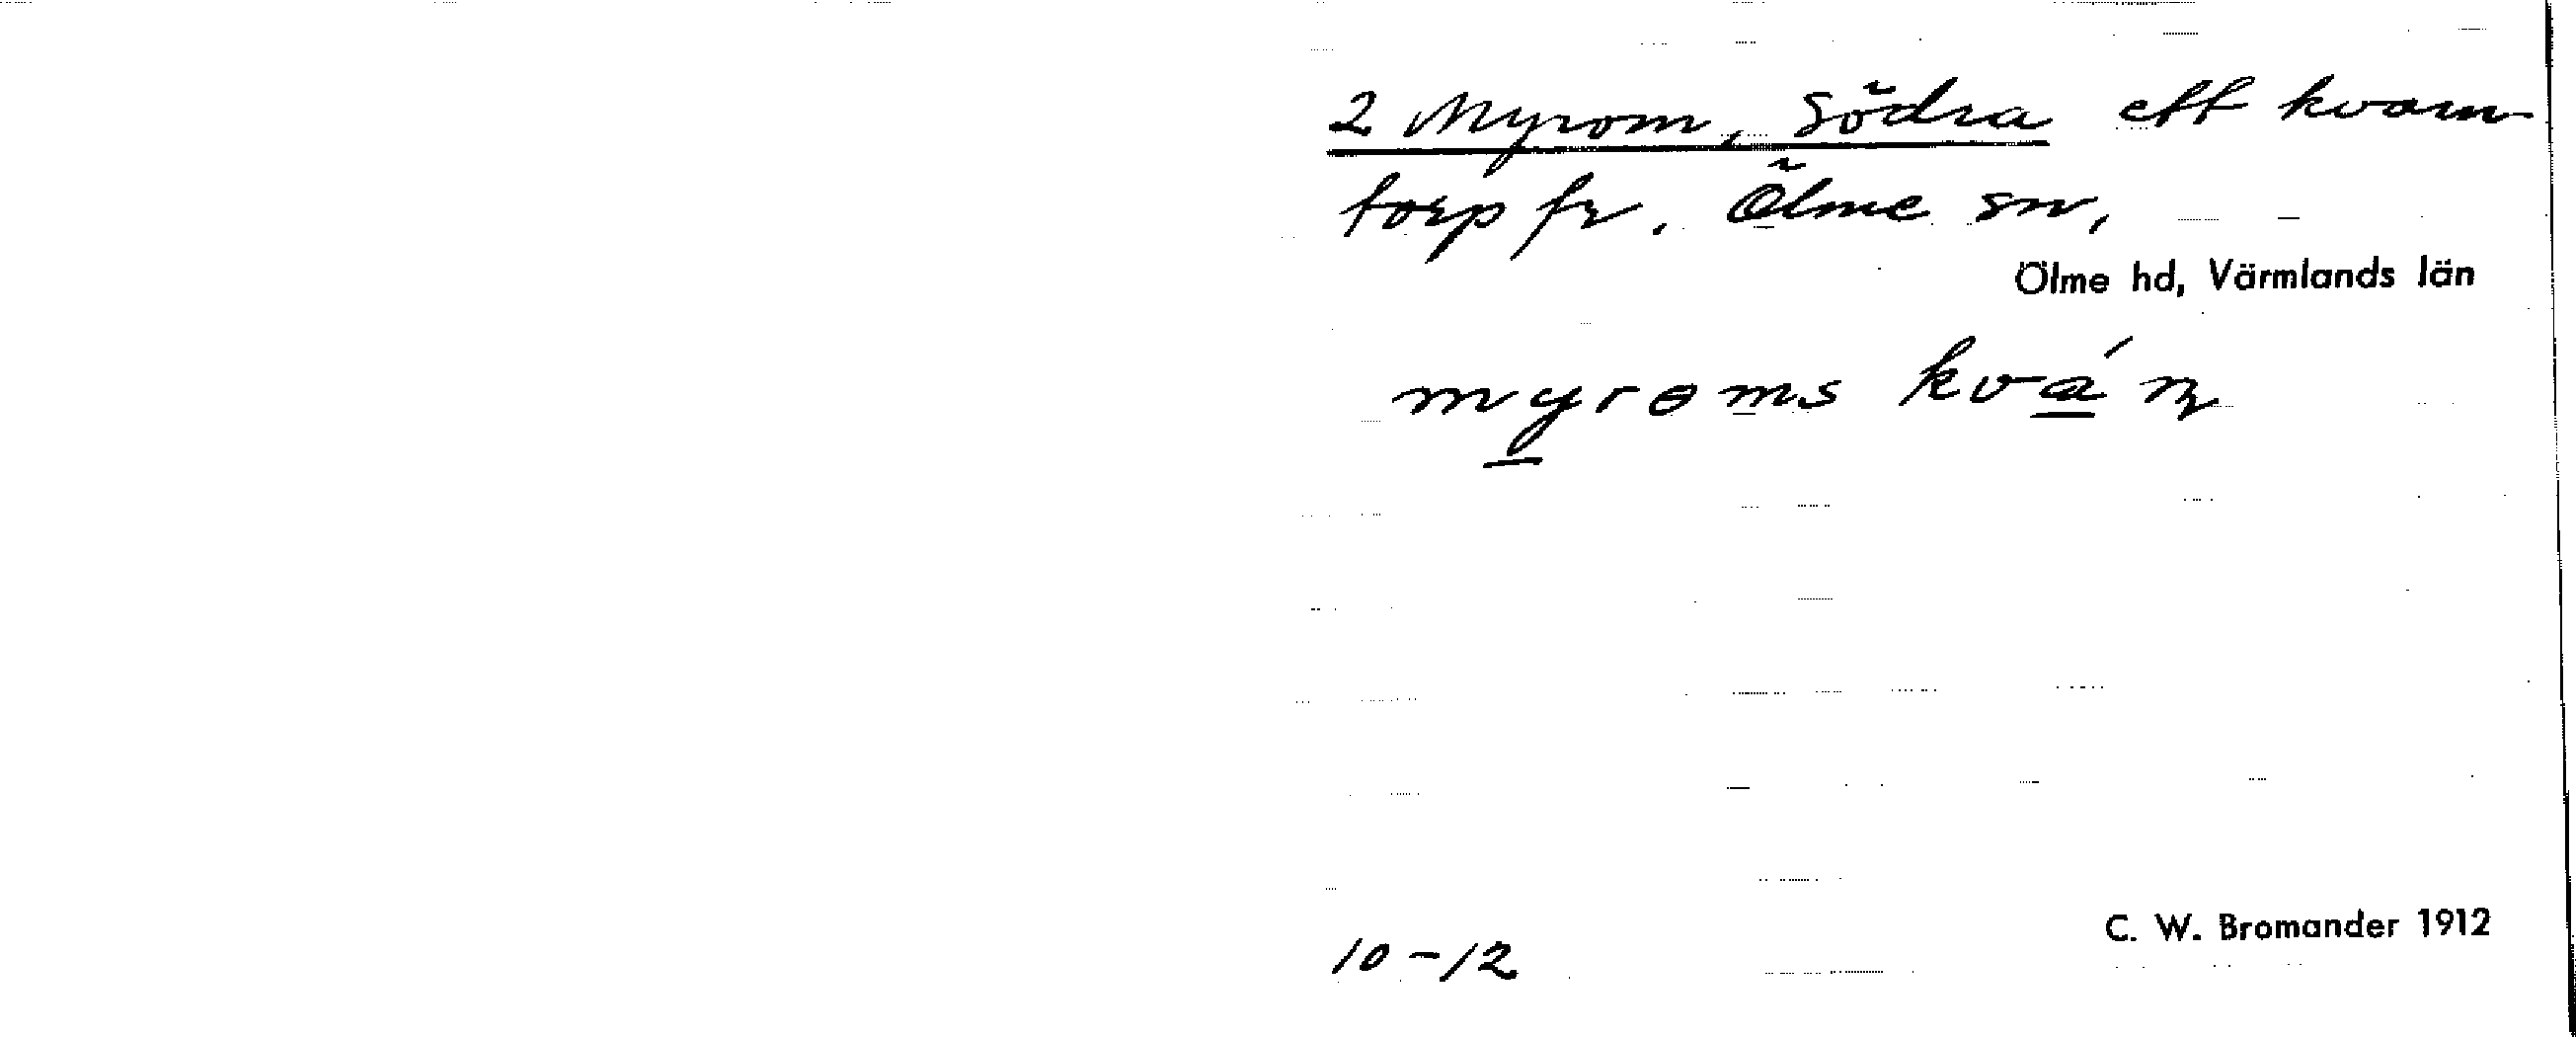 2 Myrom, Södra ett kvarn-
torp fr. Ölme sn,
Ölme hd, Värmlands län
myroms kvá
10-12
C. W. Bromander 1912